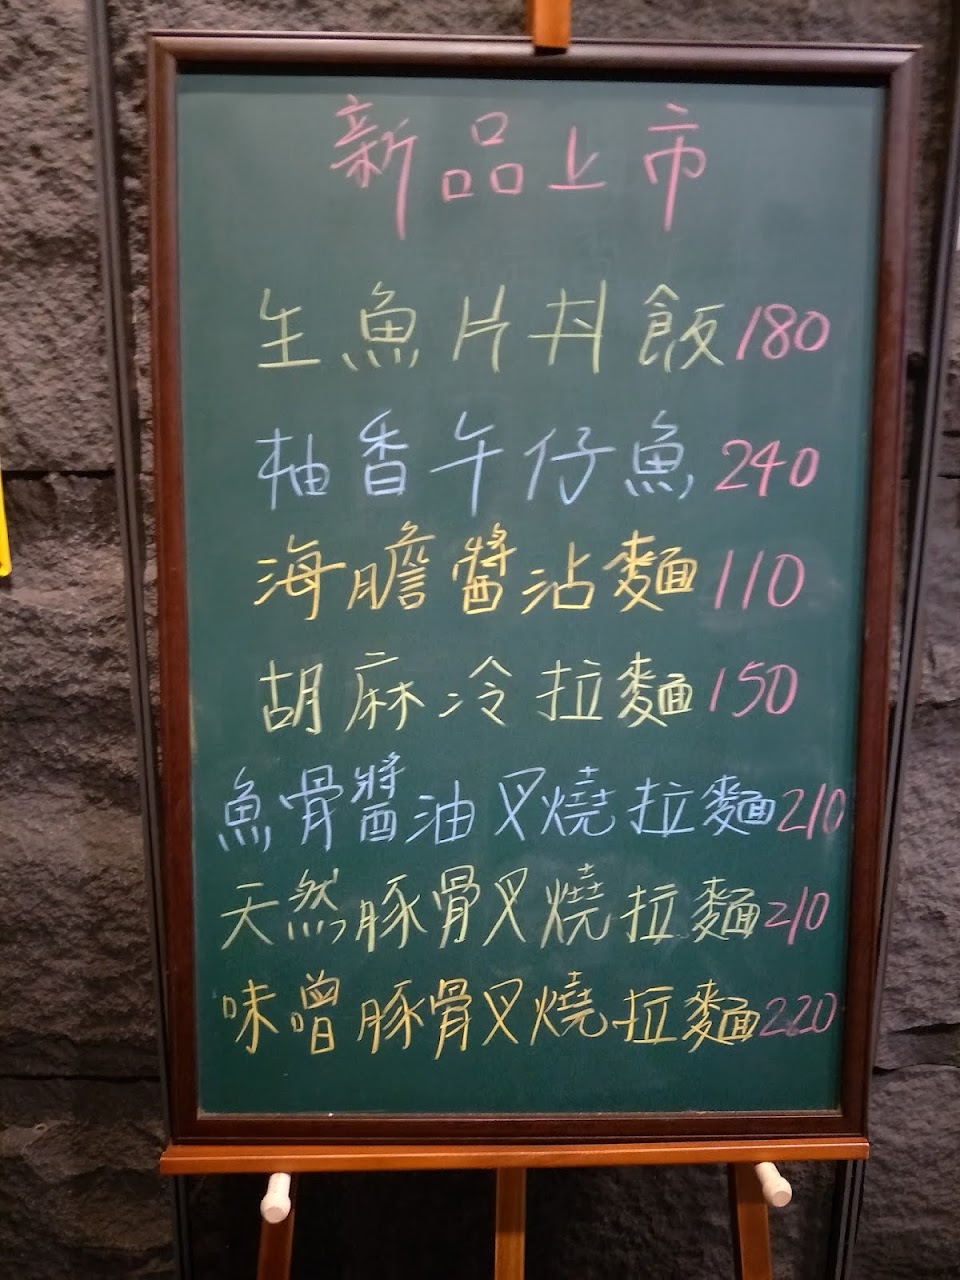 新品上市
生魚片丼飯180
柚香午仔魚240
海膽醬沾麵110
胡麻冷拉麵150
魚骨醬油叉燒拉麵210
天然豚骨叉燒拉麵210
味噌豚骨叉燒拉麵220